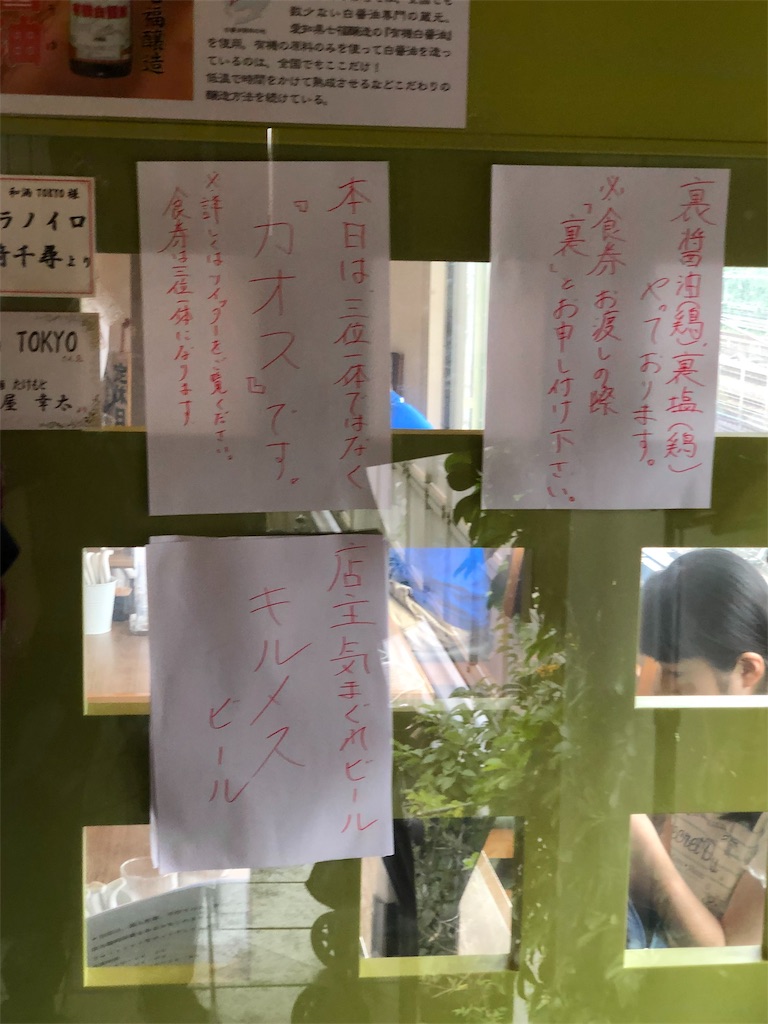 福醸造
数少ない白醤油専門の蔵元。
愛知県七福醸造の『有機白醤油』
を使用。有機の原料のみを使って白醤油を造っ
ているのは、全国でもここだけ！
低温で時間をかけて熟成させるなどこだわりの
醸造方法を続けている。
和渦TOKYO様
ラノイロ
千尋より
TOKYO
さん江
たけもと
屋 幸太
定休日
本日は、三位一体ではなく
『カオス』です。
※詳しくはツイッターをご覧ください。
食券は三位一体になります
裏醤油(鶏)、裏塩(鶏)
やっております。
※食券お渡しの際
「裏」とお申し付け下さい。
店主気まぐれビール
キルメス
ビール